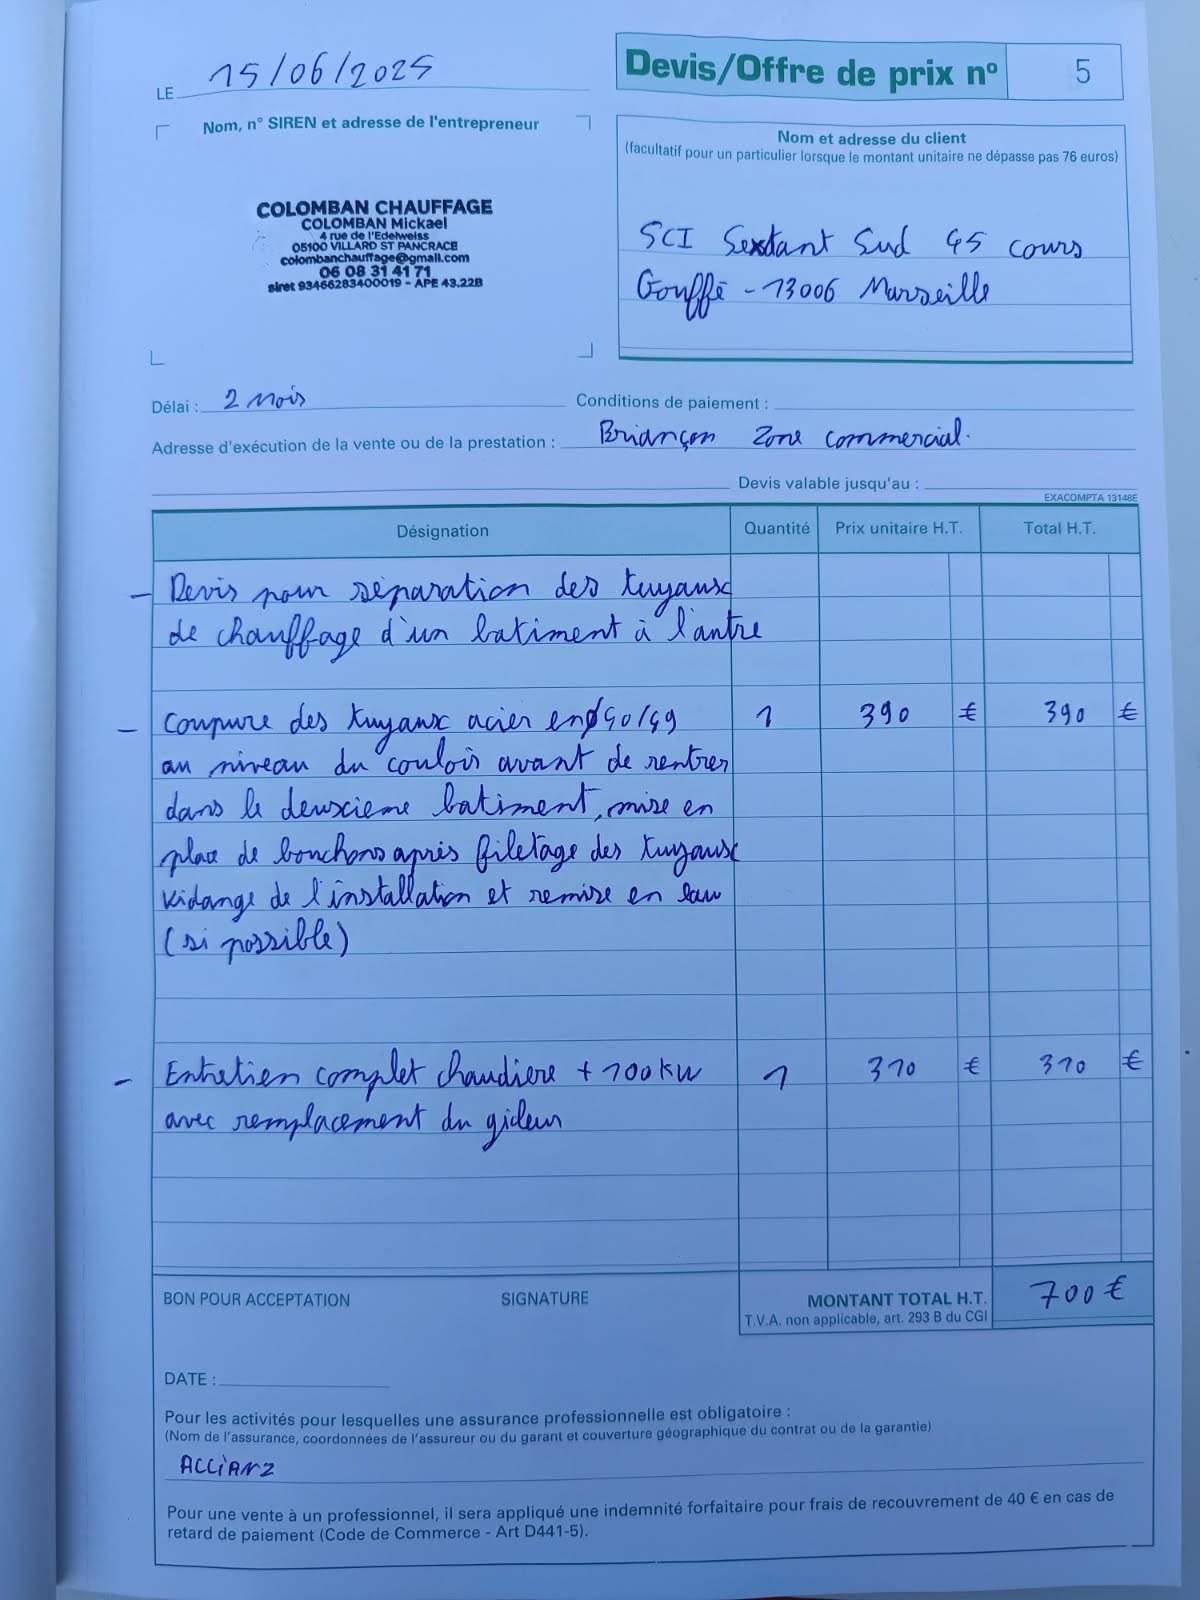 LE 15/06/2025
Devis/Offre de prix nº 5
Nom, n° SIREN et adresse de l'entrepreneur
COLOMBAN CHAUFFAGE
COLOMBAN Mickael
4 rue de l'Edelweiss
05100 VILLARD ST PANCRACE
colombanchauffage@gmail.com
06 08 31 41 71
siret 93466283400019 - APE 43.22B
Nom et adresse du client
(facultatif pour un particulier lorsque le montant unitaire ne dépasse pas 76 euros)
SCI Sextant Sud 45 cours
Gouffé - 13006 Marseille
Délai : 2 mois
Conditions de paiement :
Adresse d'exécution de la vente ou de la prestation : Briançon Zone commercial.
Devis valable jusqu'au :
EXACOMPTA 13148E
Désignation Quantité Prix unitaire H.T. Total H.T.
- Devis pour séparation des tuyaux
de chauffage d'un batiment à l'autre
- Coupure des tuyaux acier en ø 40/49 1 390 € 390 €
au niveau du couloir avant de rentrer
dans le deuxieme batiment, mise en
place de bouchons après filetage des tuyaux
vidange de l'installation et remise en eau
(si possible)
- Entretien complet chaudiere + 100 kw 1 310 € 310 €
avec remplacement du gicleur
BON POUR ACCEPTATION SIGNATURE
MONTANT TOTAL H.T. 700 €
T.V.A. non applicable, art. 293 B du CGI
DATE :
Pour les activités pour lesquelles une assurance professionnelle est obligatoire :
(Nom de l'assurance, coordonnées de l'assureur ou du garant et couverture géographique du contrat ou de la garantie)
ACCIANZ
Pour une vente à un professionnel, il sera appliqué une indemnité forfaitaire pour frais de recouvrement de 40 € en cas de
retard de paiement (Code de Commerce - Art D441-5).